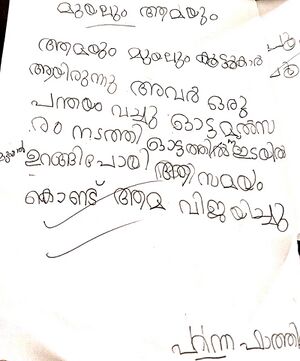 മുയലും ആമയും
ആമയും മുയലും കൂട്ടുകാർ
ആയിരുന്നു അവർ ഒരു
പന്തയം വച്ചു ഓട്ടമൽസ
രം നടത്തി ഓട്ടത്തിൽ ഇടയിൽ
മുയൽ ഉറങ്ങിപോയി ആ സമയം
കൊണ്ട് ആമ വിജയിച്ചു
ഫാത്തി